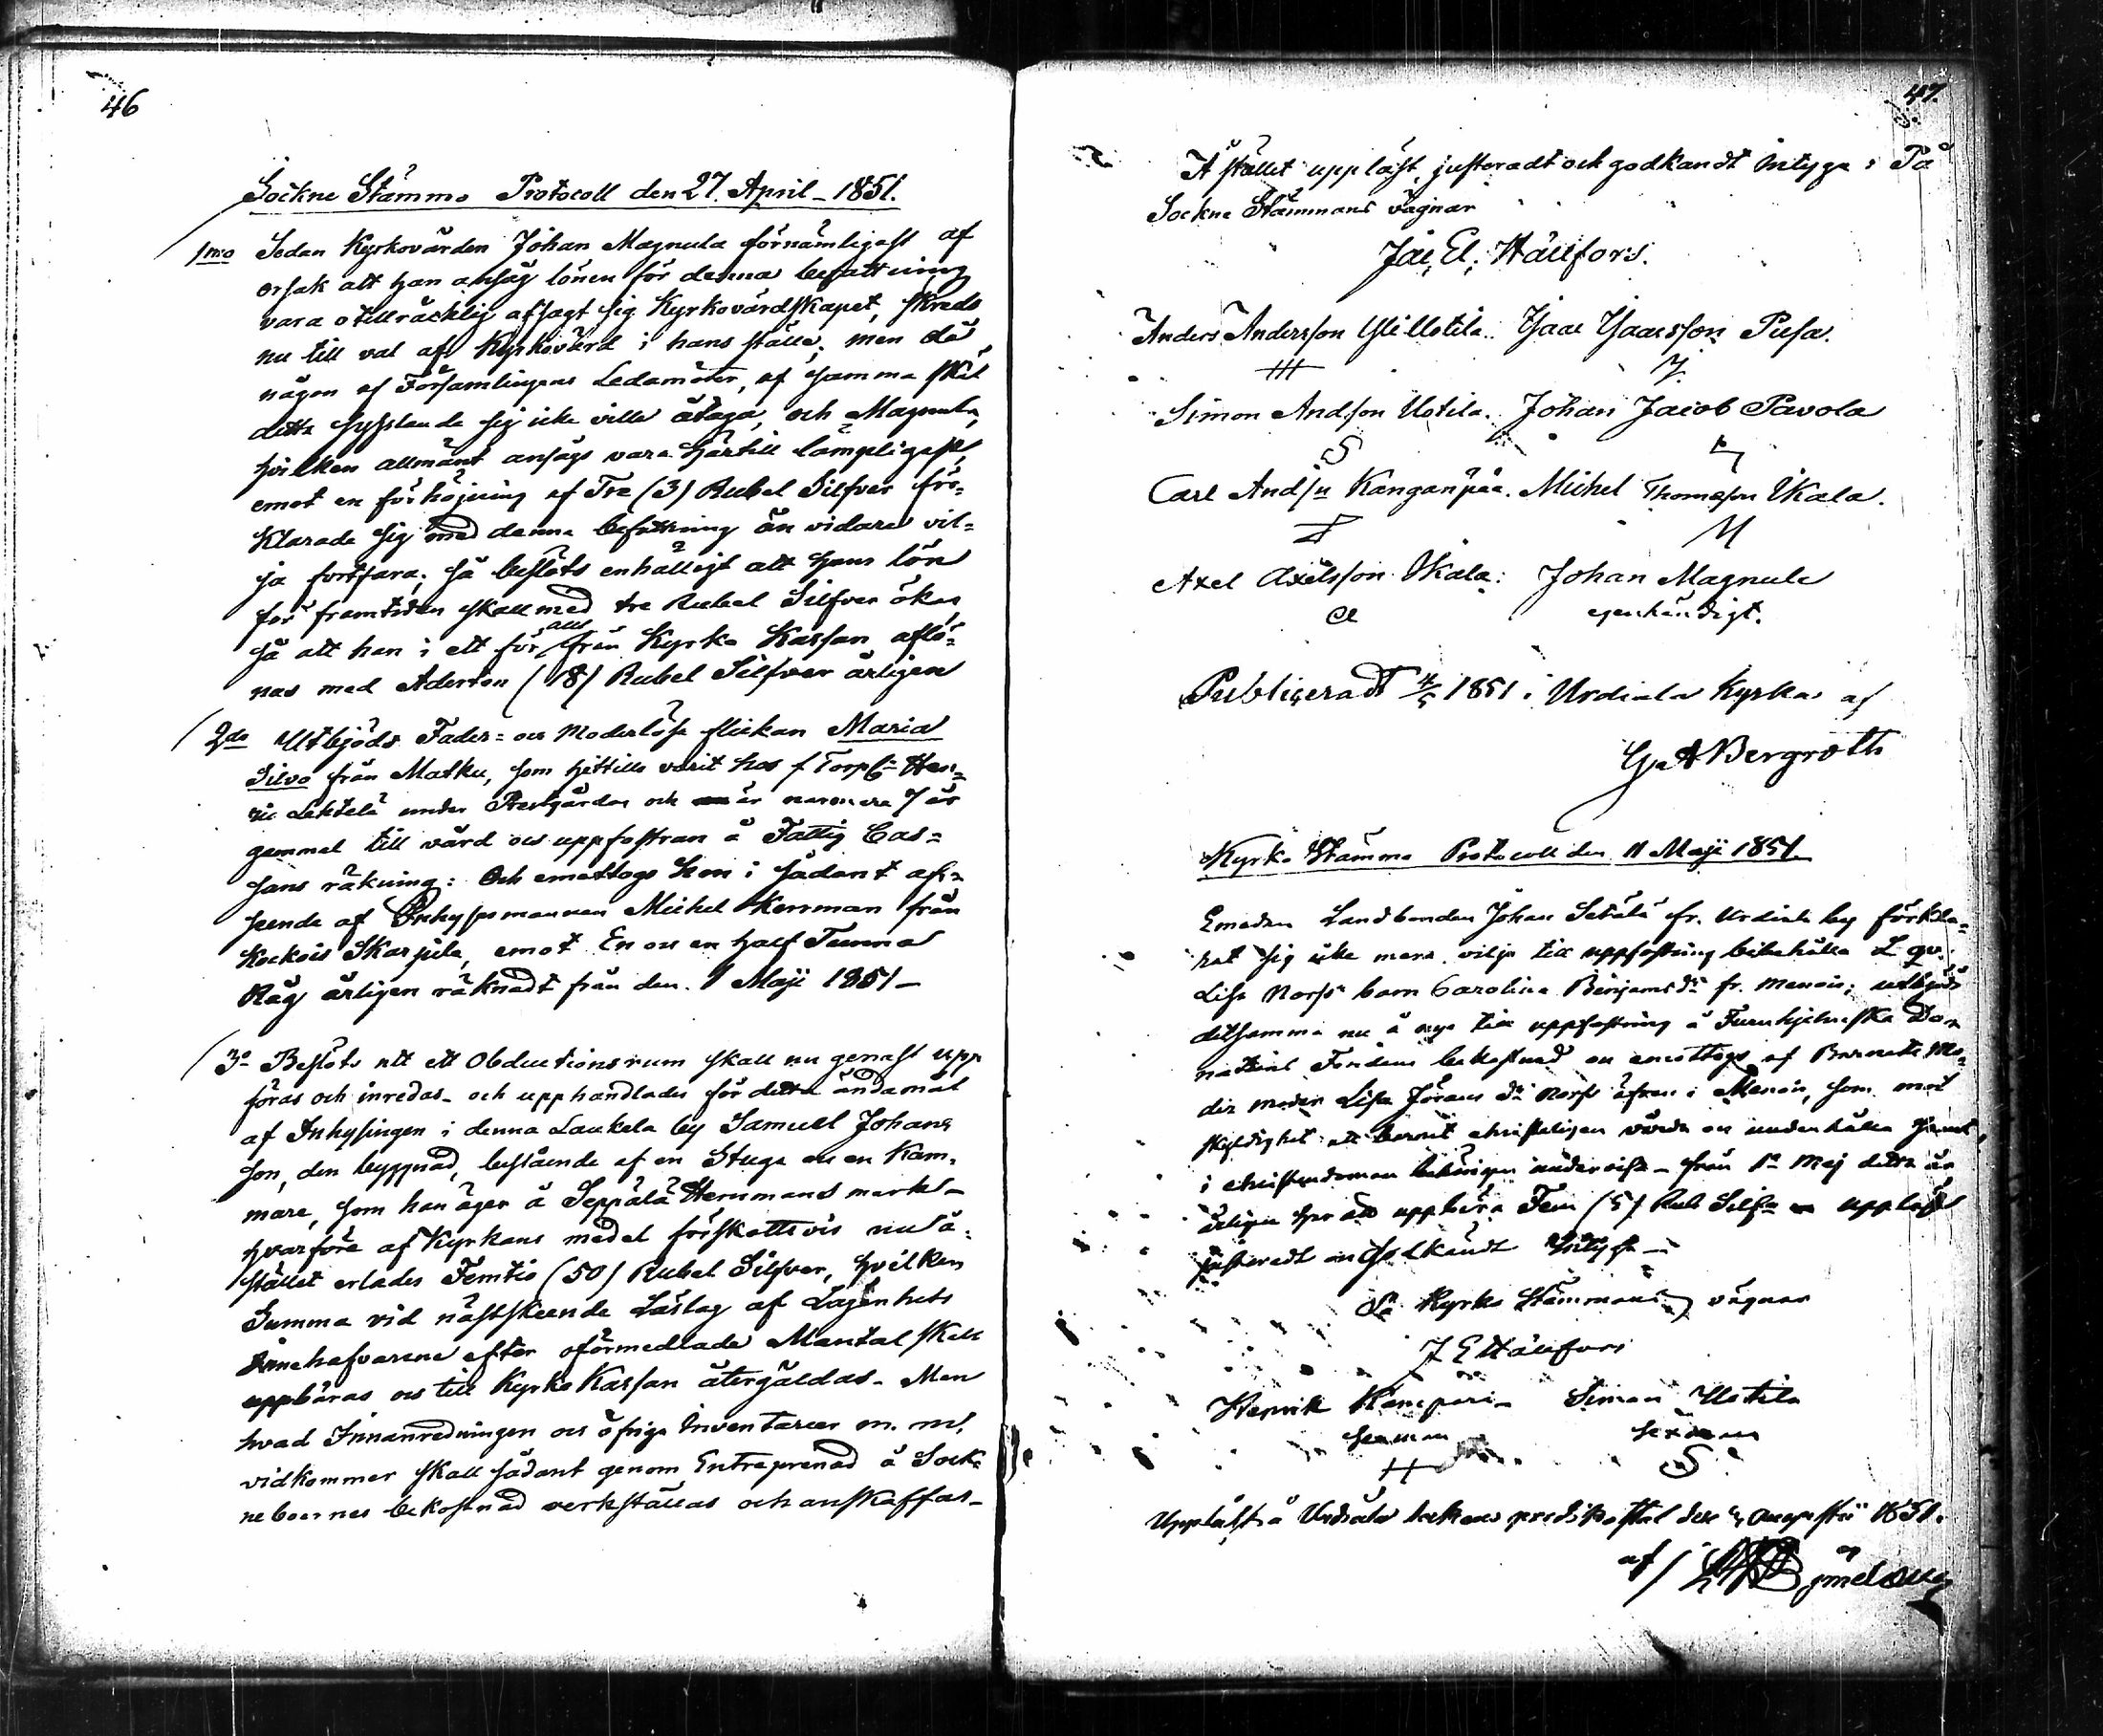 46
Sockne Stämmo Protocoll den 27. April 1851.
1mo Sedan Kyrkovärden Johan Magnula förnämligast af
orsak att han ansåg lönen för denna befattning
vara otillräcklig afsagt sig Kyrkovärdskapet, skreds
nu till val af Kyrkovärd i hans ställe; men då
någon af Församlingens Ledamöter, af samma skäl
detta sysslande sig icke ville åtaga, och Magnula,
hvilken allmänt ansågs vara härtill lämpligast,
emot en förhöjning af Tre (3) Rubel Silfver för=
klarade sig med denna befattning än vidare vil=
ja fortfara; så beslöts enhälligt att hans lön
för framtiden skall med tre Rubel Silfver ökas
så att han i ett för allt från Kyrko Kassan aflö=
nas med Aderton (18) Rubel Silfver årligen
2do Utbjöds Fader= och Moderlösa flickan Maria
Silvo från Matku, som hittills varit hos f Torp. Hen=
ric Lehtelä under Prestgården och är narmera 7 år
gammal till vård och uppfostran å Fattig Cas=
sans räkning: Och emottogs hon i sådant af=
seende af Inhysesmannen Michel Kerrman från
Kockois Skarjula, emot En och en half Tunna
Råg årligen räknadt från den 1 Maji 1851 -
3o Beslöts att ett Obductionsrum skall nu genast upp
föras och inredas - och upphandlades för detta ändamål
af Inhysingen i denna Laukela by Samuel Johans
son, den byggnad, bestående af en Stuga och en Kam=
mare, som han äger å Seppälä Hemmans mark -
hvarföre af Kyrkans medel förskottsvis nu å
stället erlades Femtio (50) Rubel Silfver, hvilken
Summa vid nästskeende Läslag af Lägenhets
Innehafvarene efter oförmedlade Mantal skall
uppbäras och till Kyrko Kassan återgäldas - Men
hvad Innanredningen och öfriga Inventarier m. m.
vidkommer skall sådant genom Entreprenad å Sock=
neboernes bekostnad verkställas och anskaffas -
47.
Å stället uppläst, justeradt och godkändt intyga: På
Sockne Stämmans vägnar
Jac. El. Hällfors.
Anders Andersson Yli Uotila. Isaac Isacsson Pusa.
Simon Andsson Uotila. Johan Jacob Pavola
S
Carl Andsn Kanganpää. Michel Thomasson Ukala.
M
Axel Axelsson Ukala: Johan Magnula
egenhändigt.
Publiceradt 4/5 1851 i Urdiala Kyrka af
G. A Bergroth
Kyrko Stämmo Protocoll den 11 Maji 1851.
Emedan Landbonden Johan Setälä fr. Urdiala by förkla=
rat sig icke mera vilja till uppfostring bibehålla L qv.
Lisa Norss barn Carolina Benjamsdr fr. Menois; utbjöds
detsamma nu å nya till uppfostring å Furuhjelmska Do=
nations Fondens bekostnad och emottogs af Barnets Mo=
der Lisa Jöransdr Norss äfven i Menois, som mot
skyldighet att barnet christeligen vårda och underhålla samt
i christendomen behörigen undervisa - från 1a Maj detta år
årligen har att uppbära Fem (5) Rub Silfr - uppläst
justeradt och godkändt intyga -
På Kyrko Stämmans vägnar
J E Hällfors
Henrik Simon Uotila
sexman sexman
H S
Uppläst å Urdiala predikostol den Augusti 1851.
af